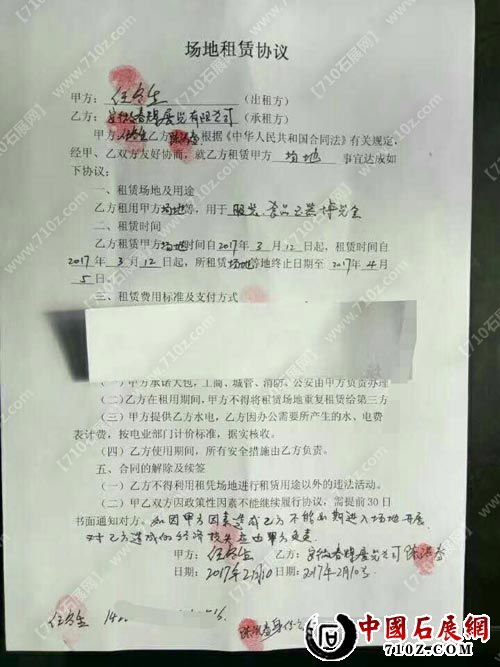 场地租赁协议
甲方：任会生（出租方）
乙方：安徽春辉展览有限公司（承租方）
甲方 任会生 乙方 陈洪春 根据《中华人民共和国合同法》有关规定，
经甲、乙双方友好协商，就乙方租赁甲方 场地 事宜达成如
下协议：
一、租赁场地及用途
乙方租用甲方场地等，用于 服装、食品工艺博览会
二、租赁时间
乙方租赁甲方场地时间自2017年3月12日起，租赁时间自
2017年3月12日起，所租赁场地等地终止日期至2017年4月
5日。
三、租赁费用标准及支付方式
（一）甲方承诺大包，工商、城管、消防、公安由甲方负责办理
（二）乙方在租用期间，甲方不得将租赁场地重复租赁给第三方
（三）甲方提供乙方水电，乙方因办公需要所产生的水、电费
表计费，按电业部门计价标准，据实核收。
（四）乙方使用期间，所有安全措施由乙方负责。
五、合同的解除及续签
（一）乙方不得利用租凭场地进行租赁用途以外的违法活动。
（二）甲乙双方因政策性因素不能继续履行协议，需提前30日
书面通知对方。如因甲方因素造成乙方不能如期进入场地开展，
对乙方造成的经济损失应由甲方负责
甲方：任会生 乙方：安徽春辉展览公司 陈洪春
日期：2017年2月10 日期：2017年2月10号
任会生
陈洪春身份
中國石展網
710Z.COM
【710z.com石展网】